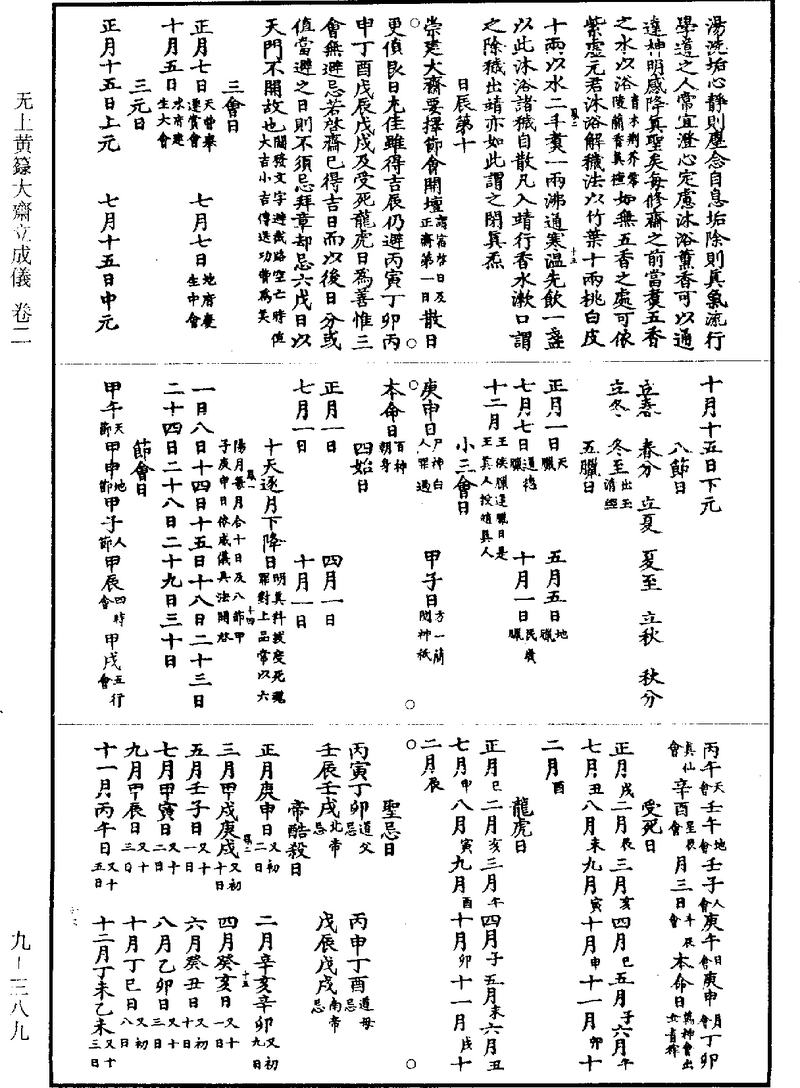 湯洗垢心靜則塵念自息垢除則真氣流行
學道之人常宜澄心定慮沐浴薰香可以通
達神明感降真聖矣每修齋之前當煑五香
之水以浴青木荆芥零陵蘭香真檀如無五香之處可依
紫虛元君沐浴解穢法以竹葉十兩桃白皮
十兩以水二千煑一兩沸通寒温先飲一盞
以此沐浴諸穢自散凡入靖行香水漱口謂
之除穢出靖亦如此謂之閉真炁
日辰第十
崇建大齋要擇節會開壇謂宿啓日及正齋第一日散日
更值良日尤佳雖得吉辰仍避丙寅丁卯丙
申丁酉戊辰戊戌及受死龍虎日為善惟三
會無避忌若啓齋已得吉日而以後日分或
值當避之日則不須忌拜章却忌六戊日以
天門不開故也關發文字避截路空亡時值大吉小吉傳送功曹為美
三會日
正月七日天曹舉遷賞會 七月七日地府慶生中會
十月五日水府建生大會
三元日
正月十五日上元 七月十五日中元
十月十五日下元
八節日
立春 春分 立夏 夏至 立秋 秋分
立冬 冬至出玉清經
五臘日
正月一日天臘 五月五日地臘
七月七日道德臘 十月一日民歲臘
十二月王侯臘道臘日是王真人授靖真人
小三會日
庚申日尸神白人罪過 甲子日方一簡閱神祇
本命日百神朝身
四始日
正月一日 四月一日
七月一日 十月一日
十天逐月下降日明真科拔度死魂罪對上品常以六
陽月每月合十日及八節甲子庚申日依威儀具法開啓
一日八日十四日十五日十八日二十三日
二十四日二十八日二十九日三十日
節會日
甲午天節甲申地節甲子人節甲辰四時會甲戌五行會
丙午天會壬午地會壬子人會庚午日會庚申月會丁卯
真仙會辛酉星辰會月三日斗辰會本命日萬神會出北首
受死日
正月戌二月辰三月亥四月巳五月子六月午
七月丑八月未九月寅十月申十一月卯十
二月酉
龍虎日
正月巳二月亥三月午四月子五月未六月丑
七月申八月寅九月酉十月卯十一月戌十
二月辰
聖忌日
丙寅丁卯道父忌 丙申丁酉道母忌
壬辰壬戌北帝忌 戊辰戊戌南帝忌
帝酷殺日
正月庚申日又初二日 二月辛亥辛卯又初九日
三月甲戌庚戌又初十日 四月癸亥日又十一日
五月壬子日又十一日 六月癸丑日又十日
七月甲寅日又十二日 八月乙卯日又十三日
九月甲辰日又十三日 十月丁巳日又初八日
十一月丙午日又十五日 十二月丁未乙未又十三日
无上黄籙大齋立成儀 卷二
九-三八九